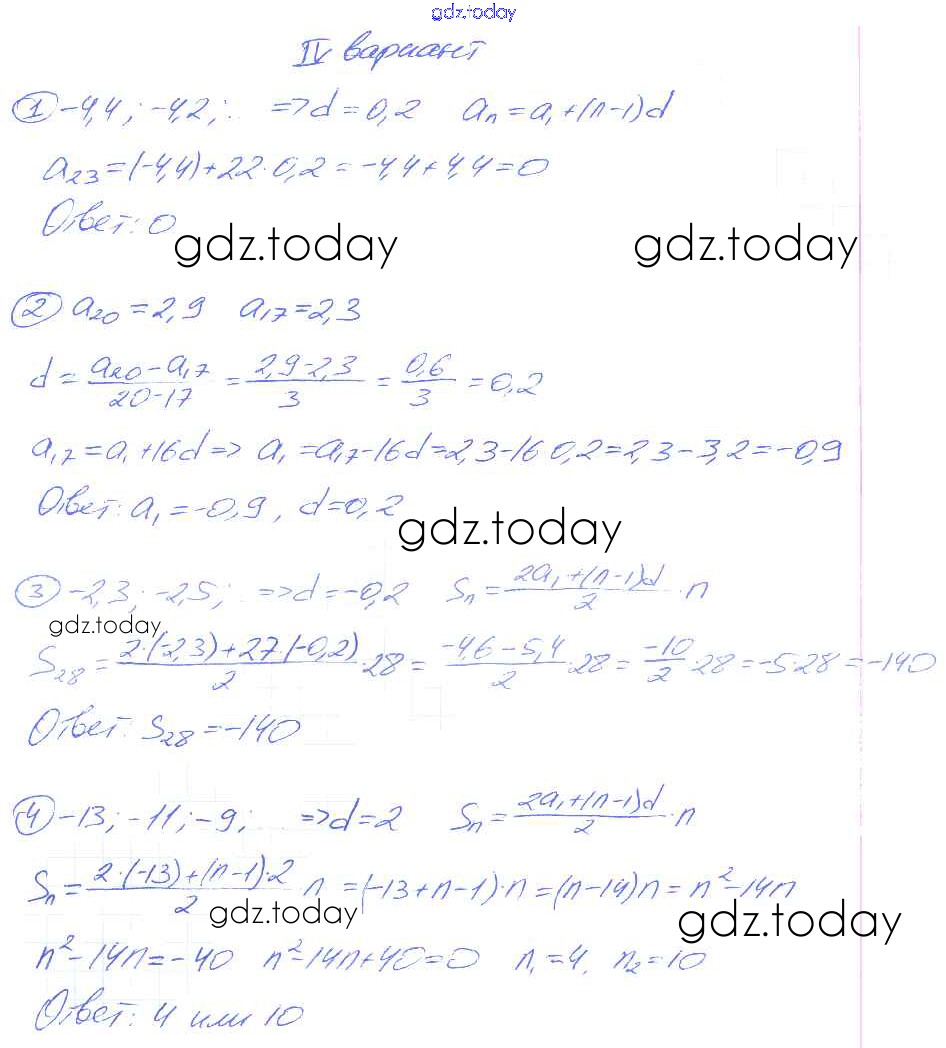 gdz.today
IV вариант
① -4,4; -4,2; .. => d = 0,2 aₙ = a₁ + (n-1)d
a₂₃ = (-4,4) + 22·0,2 = -4,4 + 4,4 = 0
Ответ: 0
gdz.today gdz.today
② a₂₀ = 2,9 a₁₇ = 2,3
d = (a₂₀ - a₁₇)/(20-17) = (2,9-2,3)/3 = 0,6/3 = 0,2
a₁₇ = a₁ + 16d => a₁ = a₁₇ - 16d = 2,3 - 16 0,2 = 2,3 - 3,2 = -0,9
Ответ: a₁ = -0,9, d = 0,2
gdz.today
③ -2,3; -2,5; .. => d = -0,2 Sₙ = (2a₁ + (n-1)d)/2 · n
gdz.today
S₂₈ = (2·(-2,3) + 27·(-0,2))/2 · 28 = (-4,6 - 5,4)/2 · 28 = -10/2 · 28 = -5·28 = -140
Ответ: S₂₈ = -140
④ -13; -11; -9; => d = 2 Sₙ = (2a₁ + (n-1)d)/2 · n
Sₙ = (2·(-13) + (n-1)·2)/2 n = (-13 + n - 1)·n = (n-14)n = n² - 14n
gdz.today gdz.today
n² - 14n = -40 n² - 14n + 40 = 0 n₁ = 4, n₂ = 10
Ответ: 4 или 10